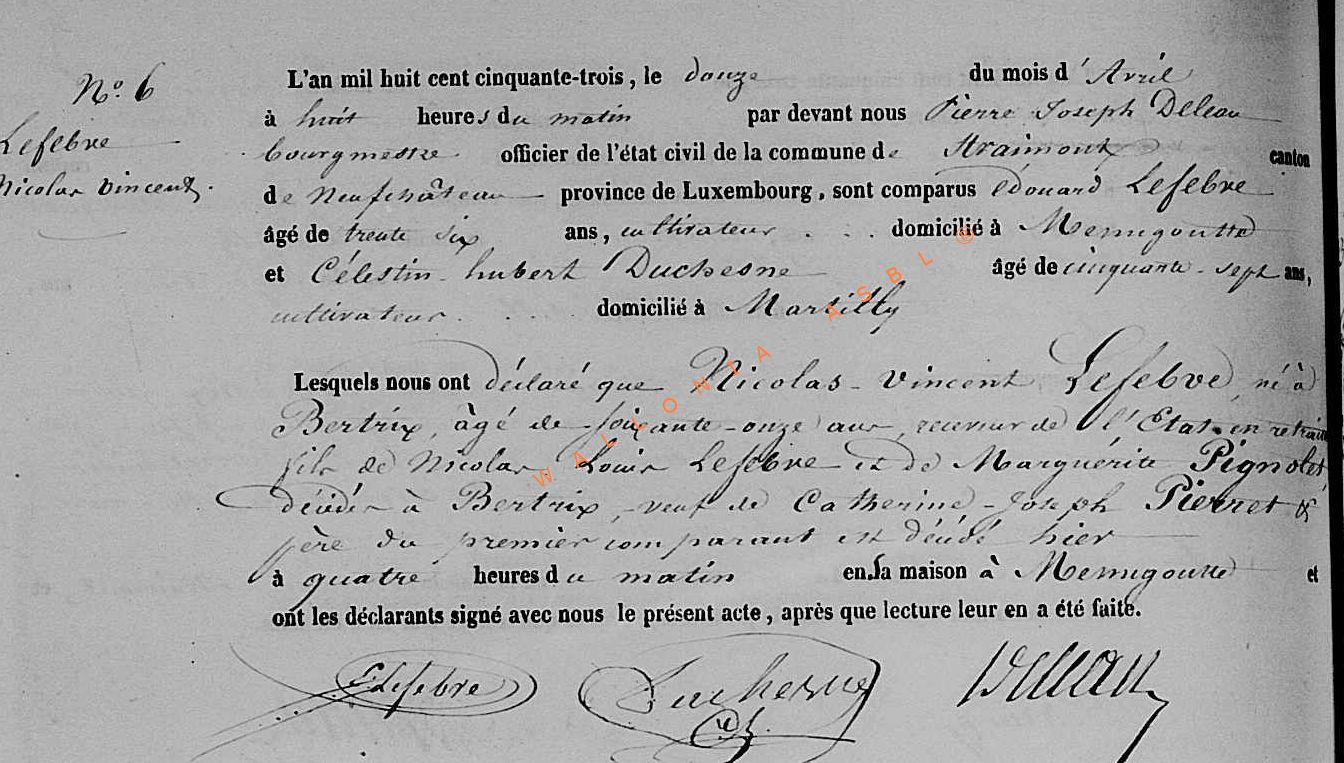 N.º 6
Lefebvre
Nicolas Vincent.
L'an mil huit cent cinquante-trois, le douze du mois d'Avril
à huit heures du matin par devant nous Pierre Joseph Deleau
bourgmestre officier de l'état civil de la commune de Straimont canton
de Neufchâteau province de Luxembourg, sont comparus Edouard Lefebvre
âgé de trente six ans, cultivateur domicilié à Menugoutte
et Célestin-hubert Duchesne âgé de cinquante-sept ans,
cultivateur domicilié à Martilly
Lesquels nous ont déclaré que Nicolas-Vincent Lefebvre, né à
Bertrix, âgé de soixante-onze ans, receveur de l'Etat en retraite
fils de Nicolas Louis Lefebvre et de Marguérite Pignolet,
décédés à Bertrix, veuf de Catherine-Joseph Pierret &
père du premier comparant est décédé hier
à quatre heures du matin en sa maison à Menugoutte et
ont les déclarants signé avec nous le présent acte, après que lecture leur en a été faite.
Lefebvre Duchesne Deleau
WALLONIA ASBL ®